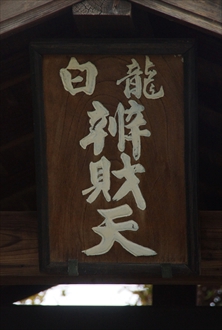 白龍
辨財天